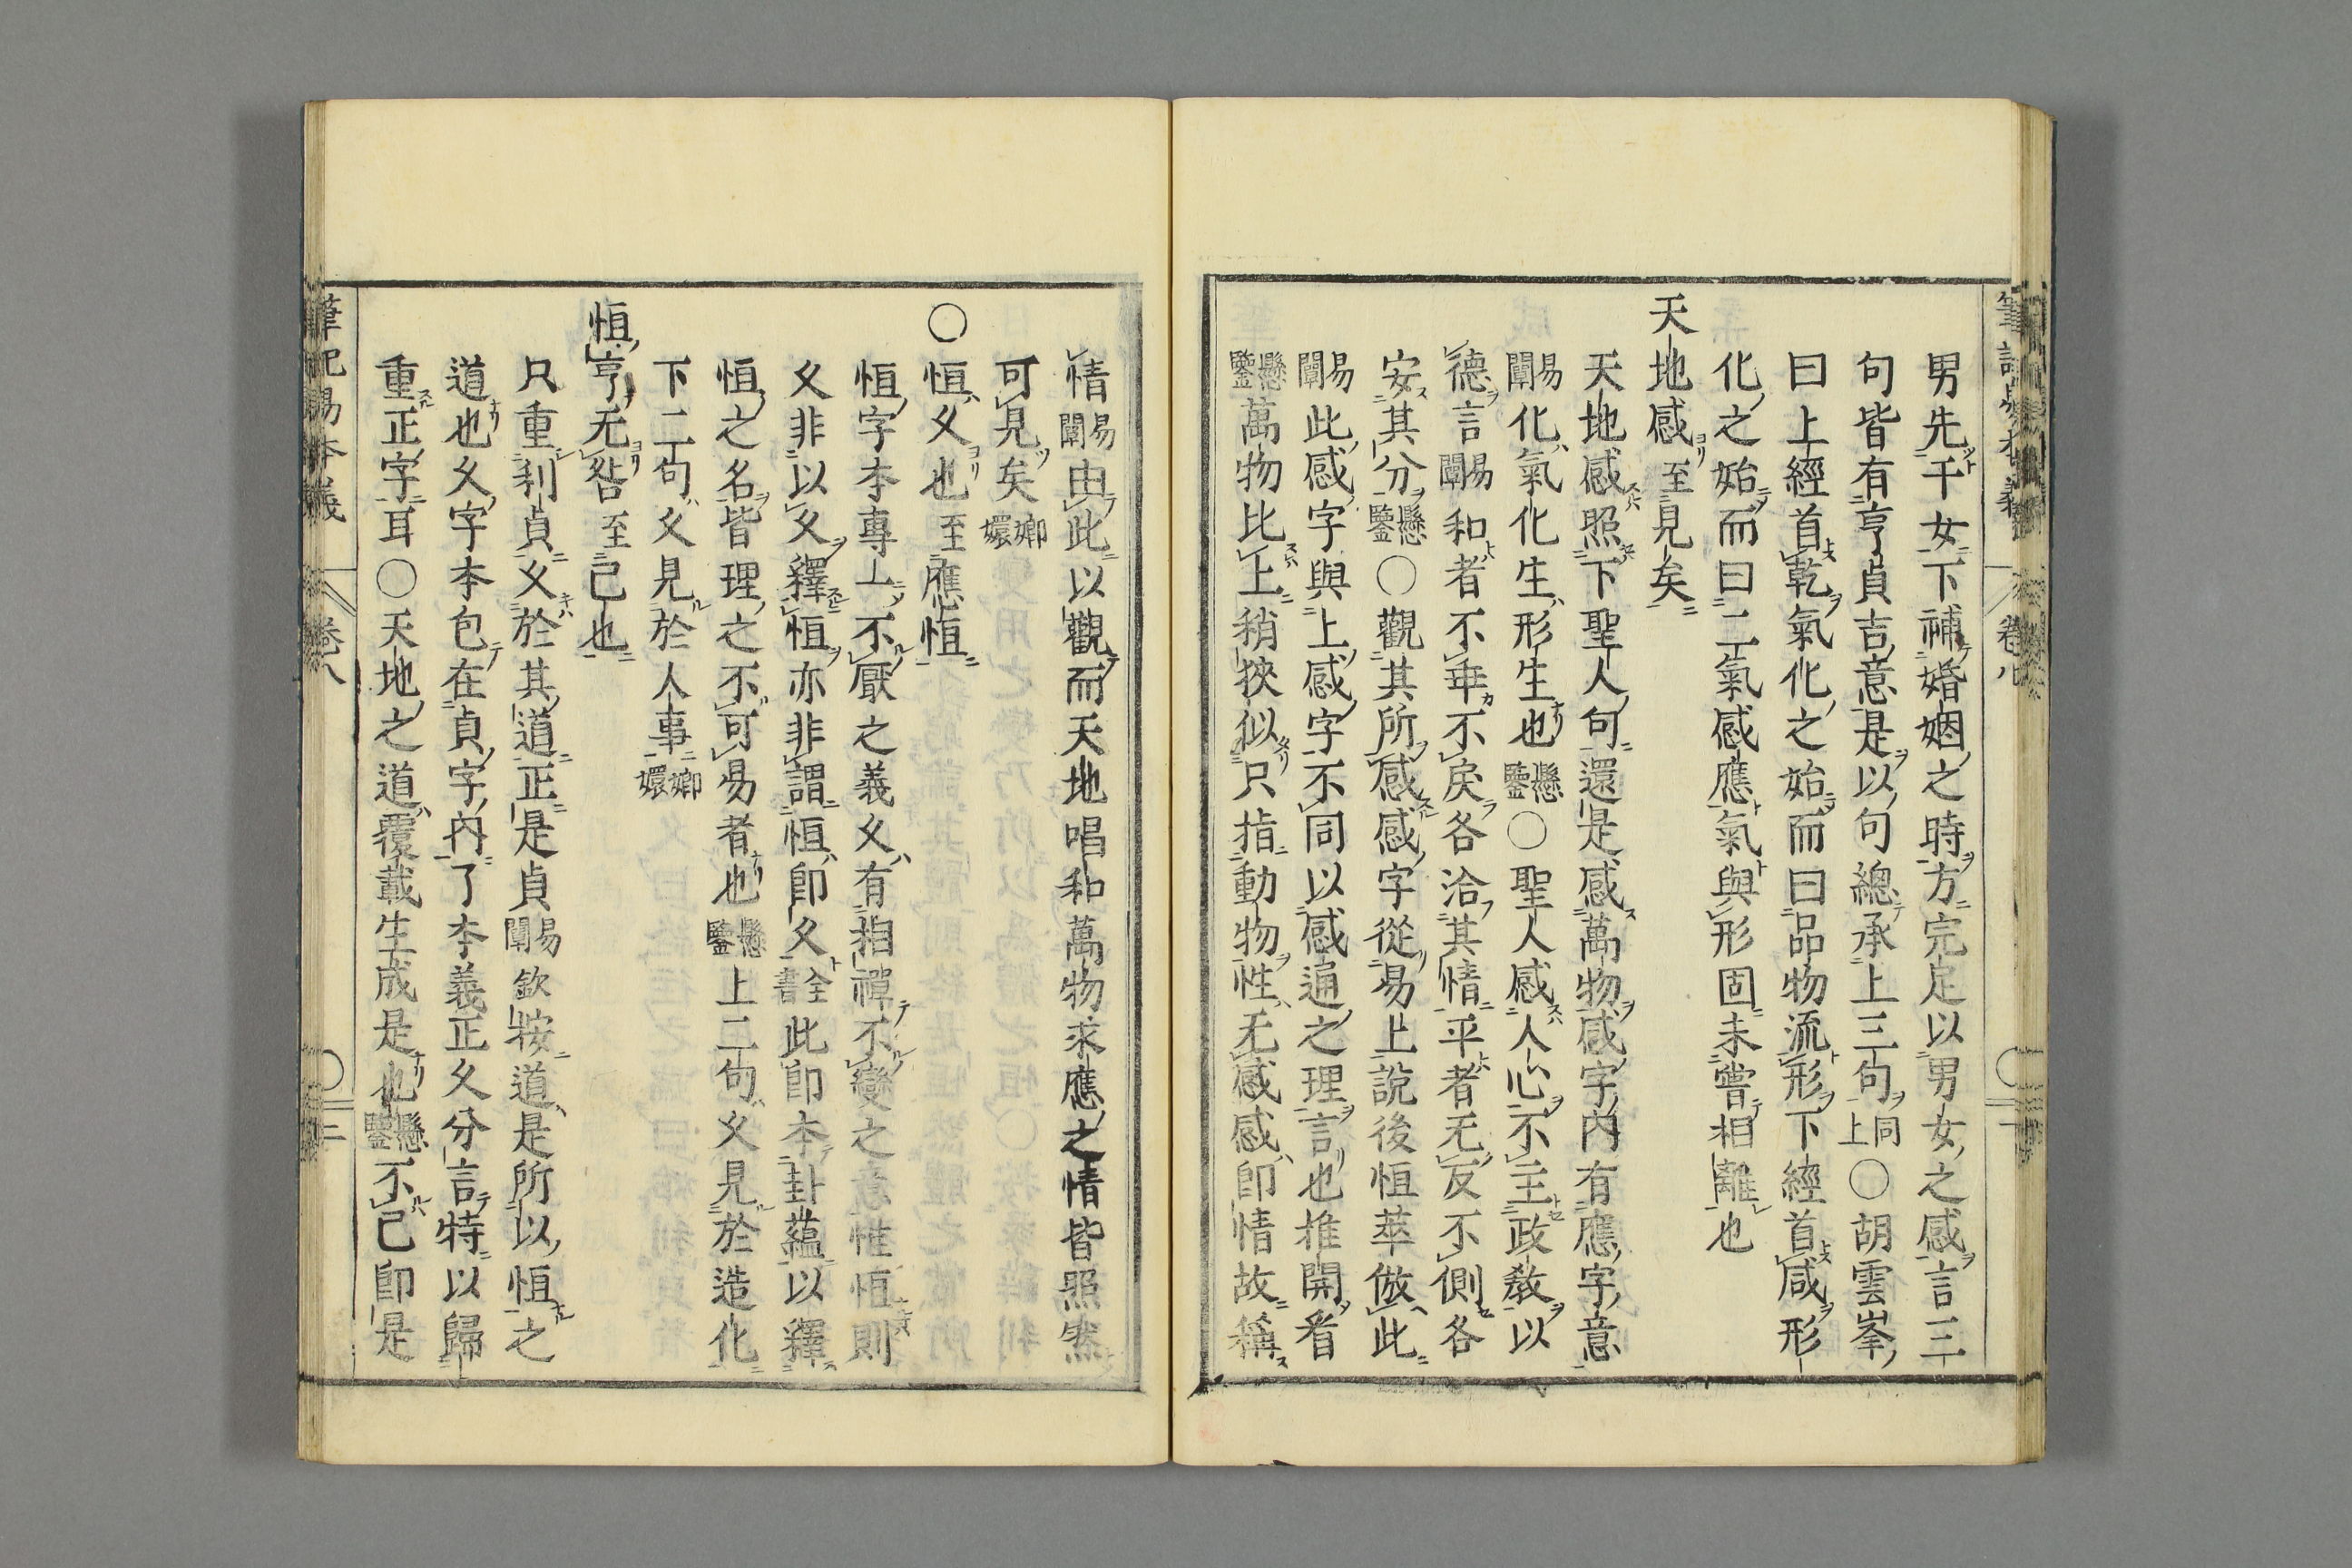 男先于女下補婚姻之時方完足以男女之感言三
句皆有亨貞吉意是以句總承上三句同上○胡雲峯
曰上經首乾氣化之始而曰品物流形下經首咸形
化之始而曰二氣感應氣與形固未嘗相離也
天地感至見矣
天地感照下聖人句還是感萬物感字内有應字意
易闡化氣化生形生也懸鑒○聖人感人心不主政教以
德言易闡和者不乖不戾各洽其情平者无反不側各
安其分懸鑒○觀其所感感字從易上說後恒萃倣此
易闡此感字與上感字不同以感通之理言也推開看
懸鑒萬物比上稍狹似只指動物性无感感即情故稱
情易闡由此以觀而天地唱和萬物求應之情皆照然
可見矣嫏嬛
○恒久也至應恒
恒字本專上不厭之義久有相禪不變之意惟恒則
久非以久釋恒亦非謂恒即久全書此即本卦蘊以釋
恒之名皆理之不可易者也懸鑒上二句久見於造化
下二句久見於人事嫏嬛
恒亨无咎至已也
只重利貞久於其道正是貞易闡欽按道是所以恒之
道也久字本包在貞字内了本義正久分言特以歸
重正字耳○天地之道覆載生成是也懸鑒不已即是
筆記易本義 卷八